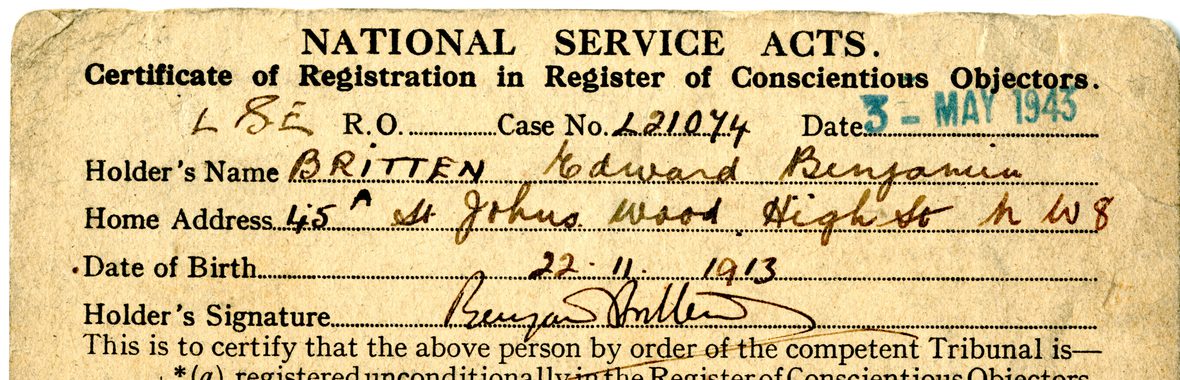 NATIONAL SERVICE ACTS.
Certificate of Registration in Register of Conscientious Objectors.
L S E R.O. Case No. L21074 Date 3 - MAY 1943
Holder's Name BRITTEN Edward Benjamin
Home Address 45A St Johns Wood High St N W 8
Date of Birth 22. 11. 1913
Holder's Signature Benjamin Britten
This is to certify that the above person by order of the competent Tribunal is—
*(a) registered unconditionally in the Register of Conscientious Objectors